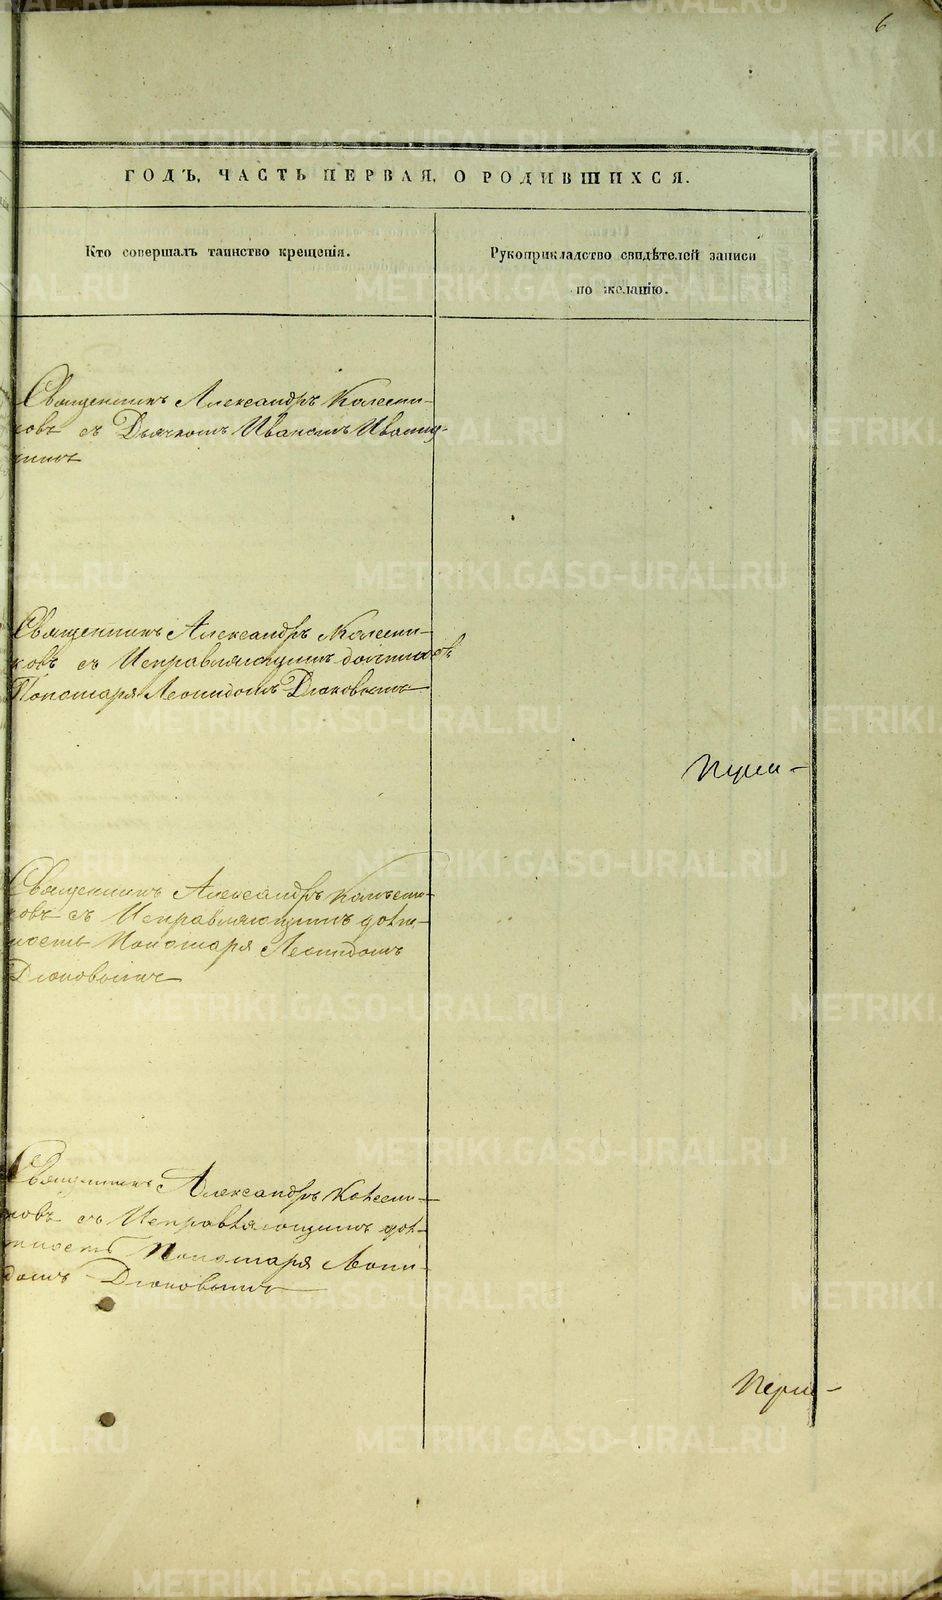 6
ГОДЪ, ЧАСТЬ ПЕРВАЯ, О РОДИВШИХСЯ.
Кто совершалъ таинство крещенія.
Рукоприкладство свидѣтелей записи
по желанію.
Священникъ Александръ Колесни-
ковъ съ Дьячкомъ Иваномъ
Священникъ Александръ Колесни-
ковъ съ Исправляющимъ должность
Пономаря Леонидомъ Дюковымъ
Священникъ Александръ Колесни-
ковъ съ Исправляющимъ долж-
ность Пономаря Леонидомъ
Дюковымъ
Священникъ Александръ Колесни-
ковъ съ Исправляющимъ долж-
ность Пономаря Леони-
домъ Дюковымъ
METRIKI.GASO-URAL.RU